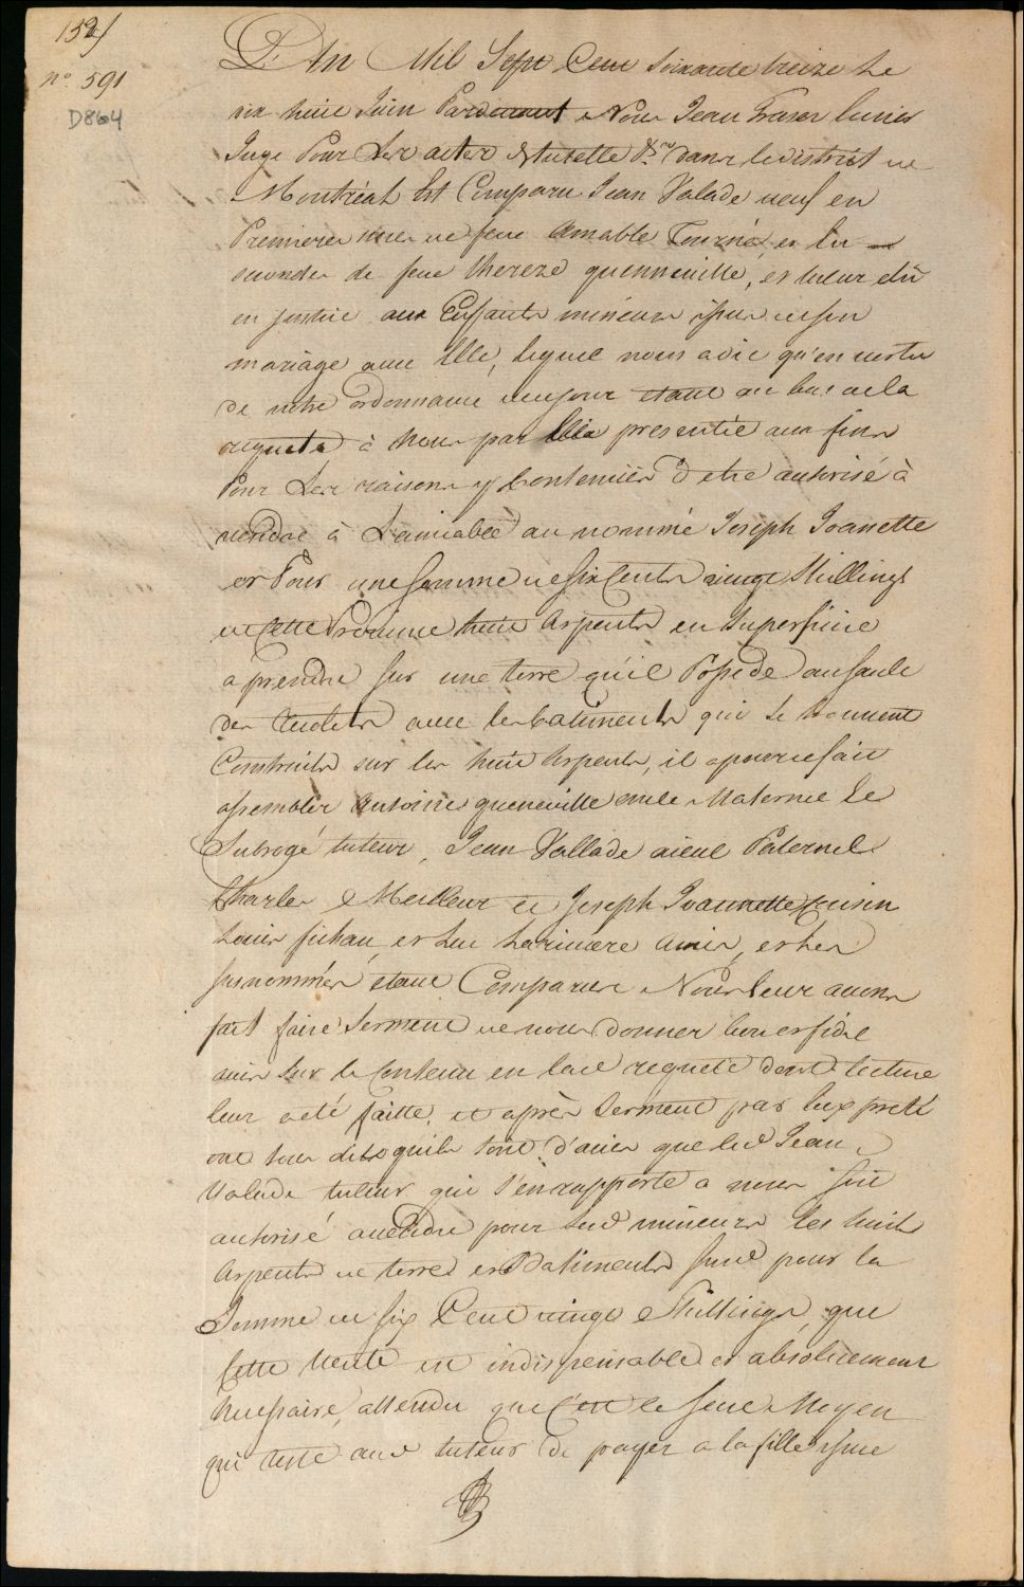 152/
n° 591
D864
L'An Mil Sept Cent Soixante treize Le
dix huit Juin Pardevant Nous Jean Fraser Ecuier
Juge Pour Les actes De tutelle &c dans le district de
Montréal Est Comparu Jean Valade veuf en
Premieres noces de feue Amable et en
secondes de feue thereze quenneuille, et tuteur elû
en justice aux Enfants mineurs issus de son
mariage avec Elle, Lequel nous a dit qu'en vertu
de notre ordonnance de ce jour étant au bas de la
requete à Nous par Lui presentée aux fins
Pour Les raisons y Contenuës D'etre autorisé à
vendre à L'amiable au nommé Joseph Joanette
et Pour une somme de six Cents vingt Shillings
de Cette Province huit Arpents en Superficie
a prendre sur une terre qu'il Possede au sault
des Recolets avec les batiments qui se trouvent
Construits sur les huit Arpents, il a pour ce fait
assembler Antoine queneuille oncle Maternel Le
Subrogé tuteur, Jean Vallade aieul Paternel
Charles Meilleur et Joseph Joannette Cousin
Louis et Luc Lariviere Amis, et Les
susnommés étant Comparus Nous Leur avons
fait faire Serment de nous donner bon et fidel
avis sur le Contenu en lad. requete dont lecture
leur a été faitte, et après Serment par Eux preté
ont tous dit qu'ils sont d'avis que led Jean
Valade tuteur qui s'en rapporte a nous soit
autorisé a vendre pour sesd mineurs Les huit
Arpents de terre et Batiments susd pour la
Somme de six Cent vingt Shillings, que
Cette Vente est indispensable et absolument
Necessaire, attendu que C'est le seul Moyen
qui reste aud tuteur De payer a la fille issue